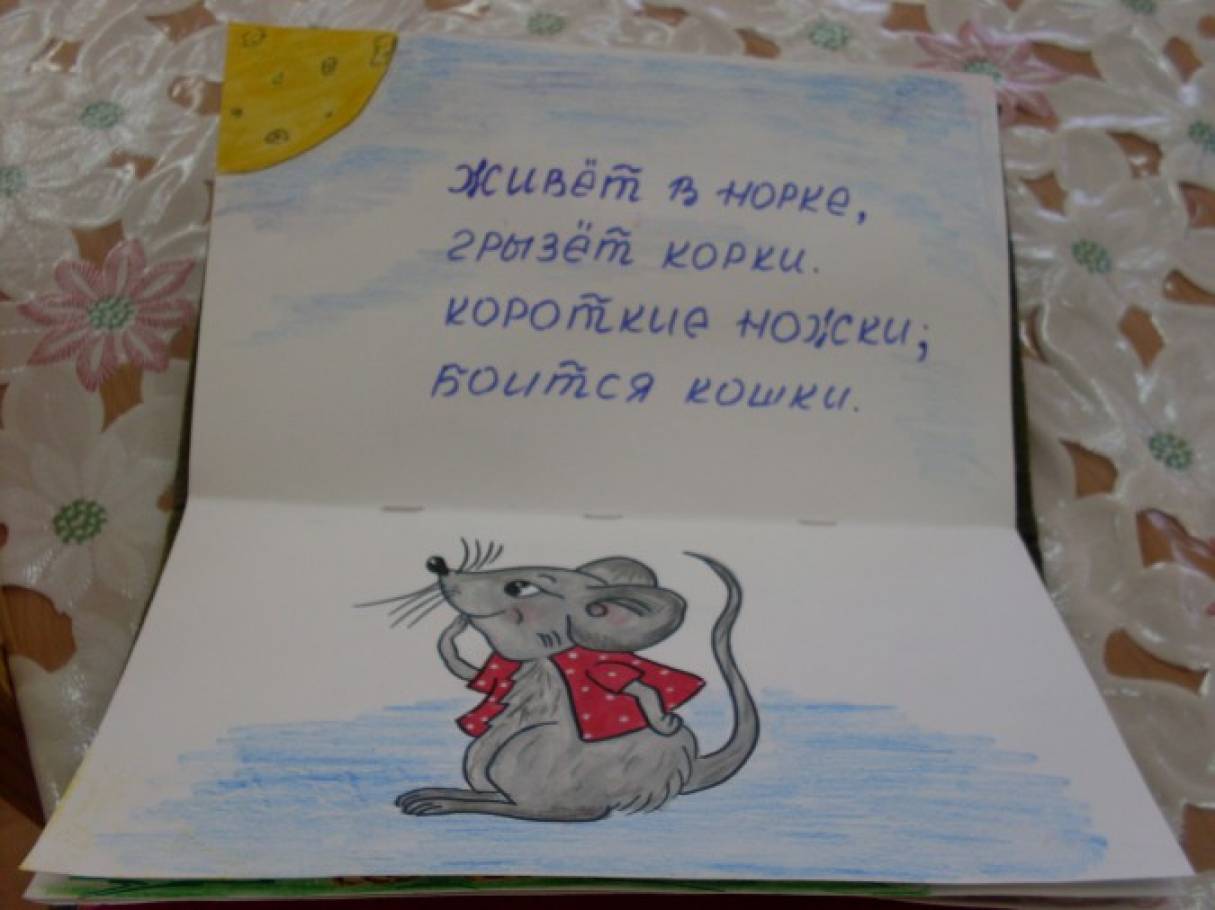 Живёт в норке,
грызёт корки.
Короткие ножки;
Боится кошки.